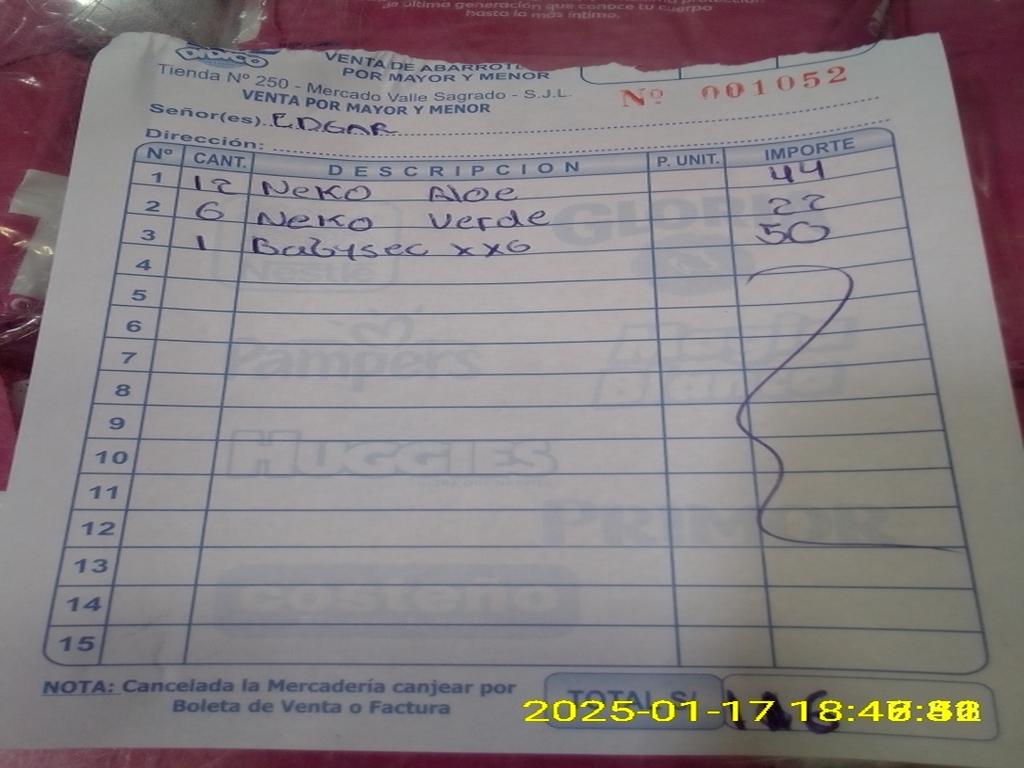 de última generación que conoce tu cuerpo
hasta lo más íntimo.
VENTA DE ABARROT
POR MAYOR Y MENOR
Tienda Nº 250 - Mercado Valle Sagrado - S.J.L.
VENTA POR MAYOR Y MENOR
Nº 001052
Señor(es). EDGAR
Dirección:
Nº CANT. DESCRIPCION P. UNIT. IMPORTE
1 12 Neko Aloe 44
2 6 Neko Verde 22
3 1 Babysec xxG 50
4
5
6
7
8
9
10
11
12
13
14
15
Nestlé
GLORIA
Pampers
HUGGIES
PRIMOR
costeño
NOTA: Cancelada la Mercadería canjear por
Boleta de Venta o Factura
TOTAL S/.
2025-01-17